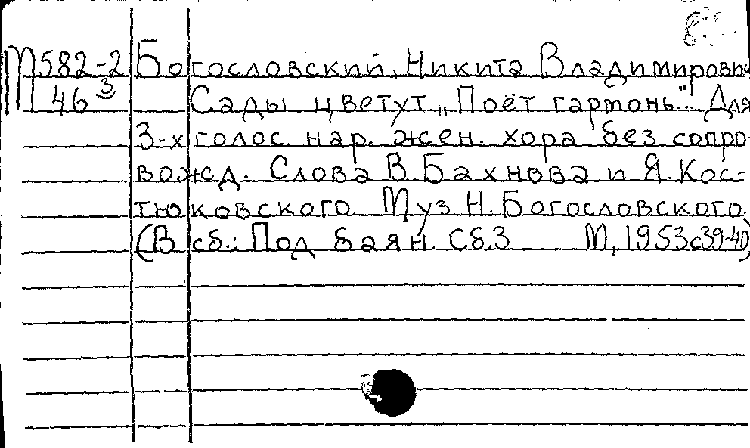 М 582-2 Богословский, Никита Владимирович
46 3 Сады цветут „Поёт гармонь". Для
3-х голос. нар. жен. хора без сопро
вожд. Слова В. Бахнова и Я. Кос-
тюковского Муз Н. Богословского
(В сб.: Под баян. Сб.3 М, 1953 с39-40)